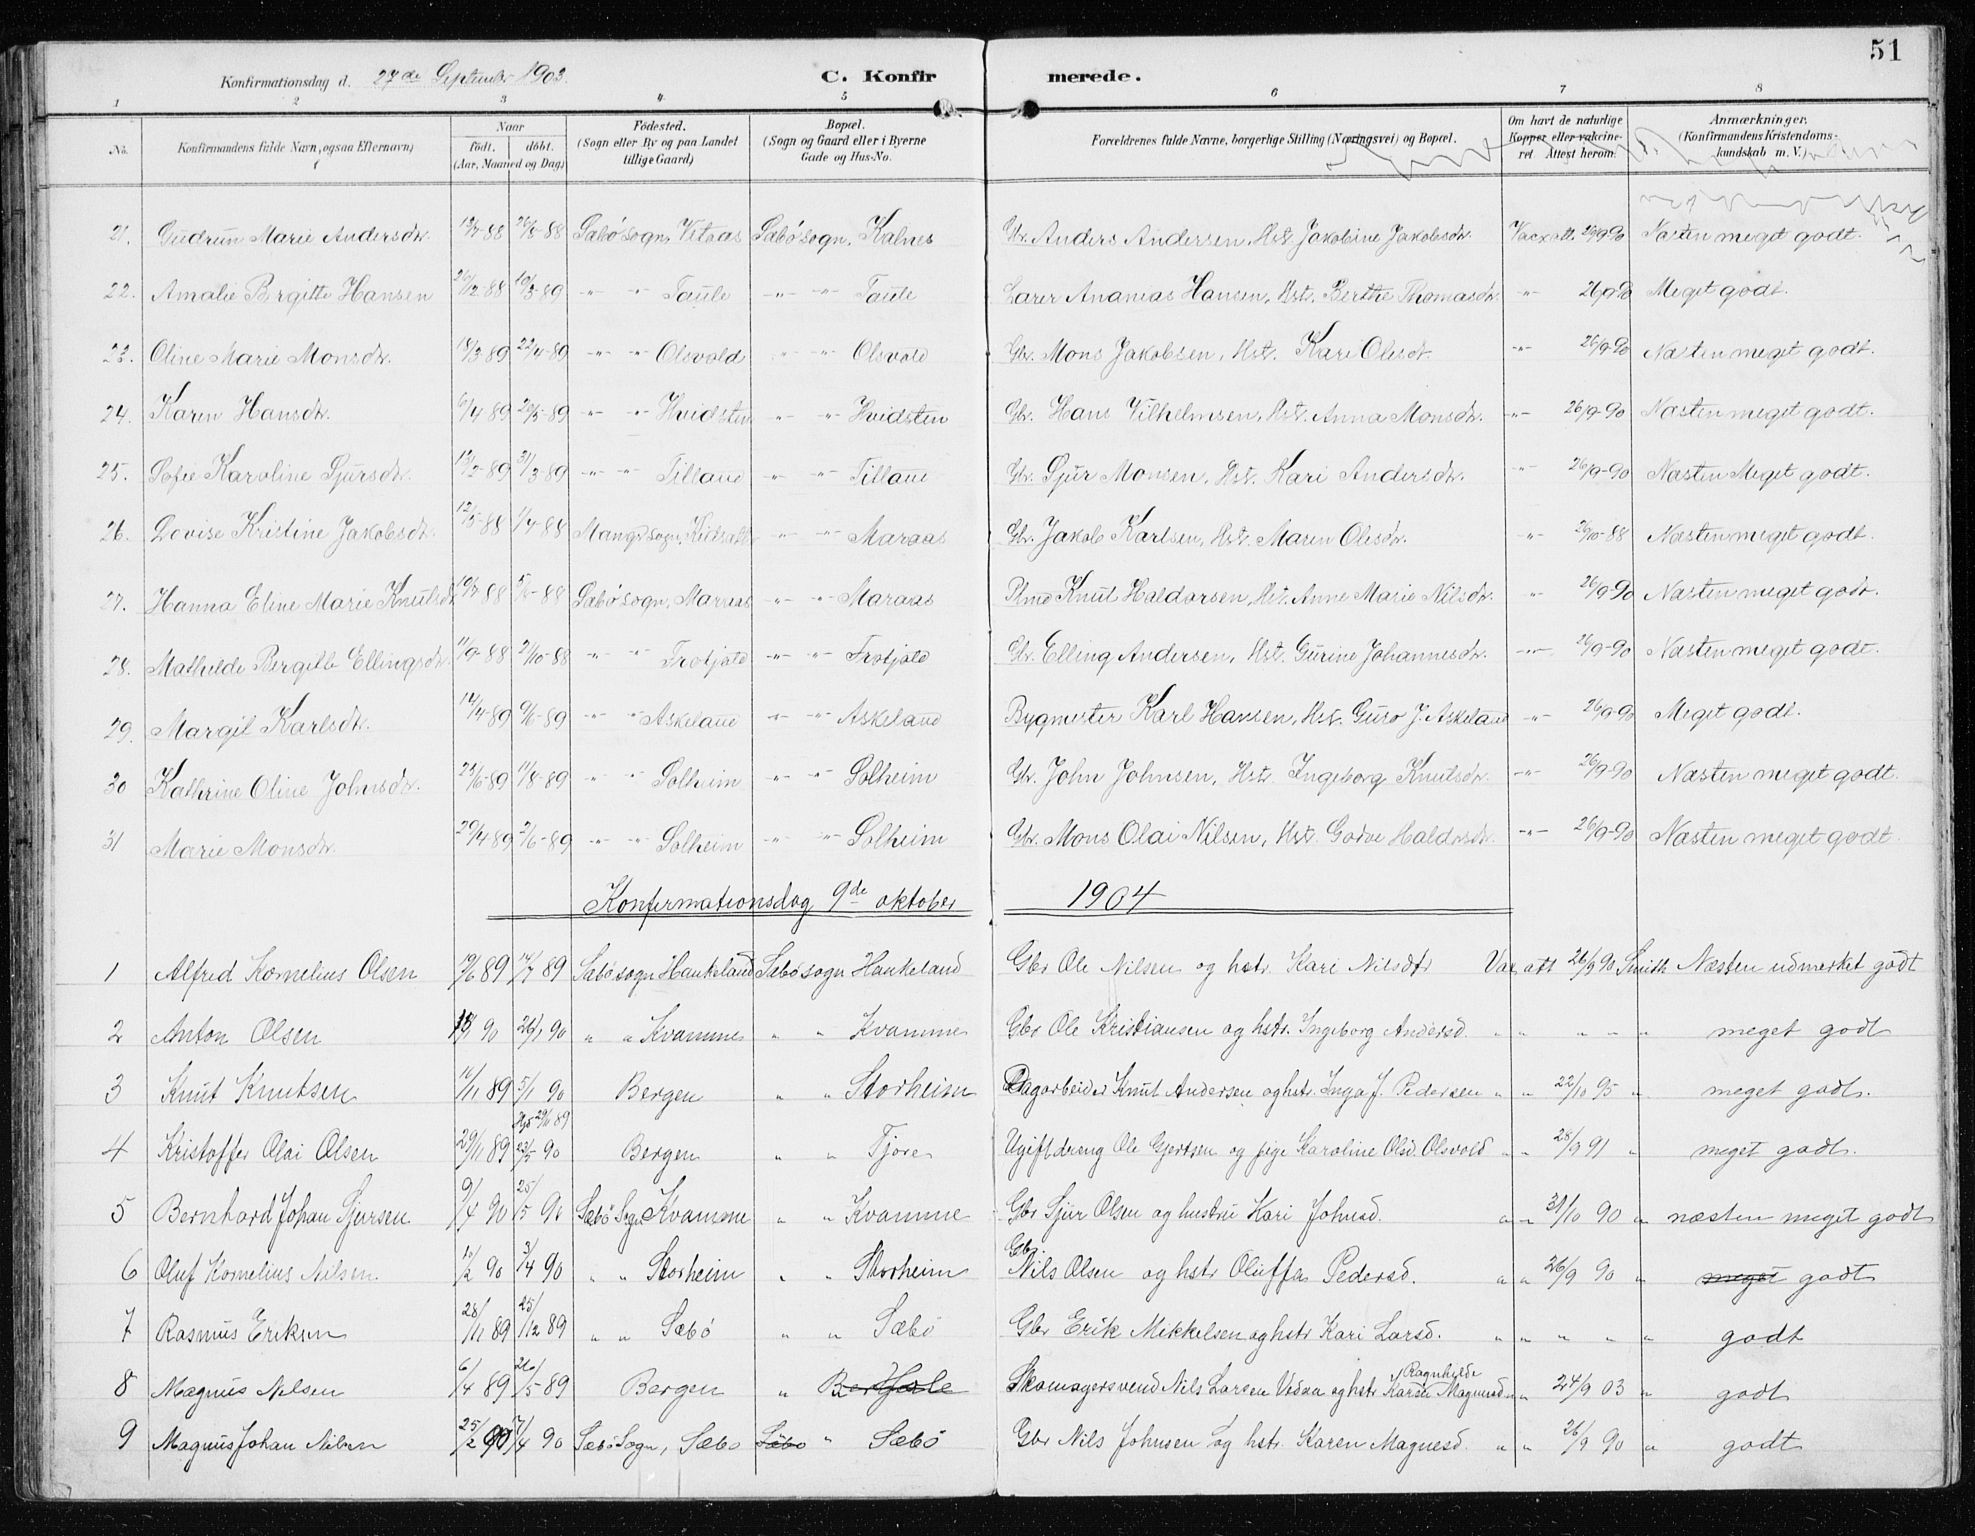 51
Konfirmationsdag d. 27de September 1903.
C. Konfirmerede.
1 2 3 4 5 6 7 8
No. Konfirmandens fulde Navn, ogsaa Efternavn) Naar født. døbt. (Aar, Maaned og Dag) Fødested. (Sogn eller By og paa Landet tillige Gaard) Bopæl. (Sogn og Gaard eller i Byerne Gade og Hus-No. Forældrenes fulde Navne, borgerlige Stilling (Næringsvei) og Bopæl. Om havt de naturlige Kopper eller vakcineret Attest herom. Anmærkninger. (Konfirmandens Kristendomskundskab m. V.)
21. Gudrun Marie Andersdtr. Sæbø sogn, Kalnes Gbr. Anders Andersen, Hst. Jakobine Jakobsdtr. Vacx att. 26/9-90 Næsten meget godt.
22. Amalie Birgitte Hansen 26/12-88 10/3-89 -"- -"- Taule -"- -"- Taule Lærer Ananias Hansen, Hst. Berthe Thomasdtr. -"- 26/9-90 Meget godt.
23. Oline Marie Monsdtr. 22/4-89 -"- -"- Olsvold -"- -"- Olsvold Gbr. Mons Jakobsen, Hst. Kari Olesdt. -"- 26/9-90 Næsten meget godt.
24. Karen Hansdtr. 6/4 89 26/5-89 -"- -"- Hvidsten -"- -"- Hvidsten Gbr. Hans Vilhelmsen, Hst. Anna Monsdtr. -"- 26/9-90 Næsten meget godt.
25. Sofie Karoline Sjursdtr. 31/3-89 -"- -"- Tilland -"- -"- Tilland Gbr. Sjur Monsen, Hst. Kari Andersdtr. -"- 26/9-90 Næsten Meget godt.
26. Lovise Kristine Jakobsdtr. 12/5-88 Mangersogn, -"- -"- Maraas Gbr. Jakob Karlsen, Hst. Maren Olesdtr. -"- 26/10-88 Næsten meget godt.
27. Hanna Eline Marie Knutsdtr Sæbø sogn, Maraas -"- -"- Maraas Plmd Knut Haldorsen, Hst. Anne Marie Nilsdtr. -"- 26/9-90 Næsten meget godt.
28. Mathilde Bergitte Ellingsdtr. 11/9-88 2/10-88 -"- -"- Frotjold -"- -"- Frotjold Gbr. Elling Andersen, Hst. Gurine Johannesdtr. -"- 26/9-90 Næsten meget godt.
29. Margit Karlsdtr. 14/4-89 9/6-89 -"- -"- Askeland -"- -"- Askeland Bygmester Karl Hansen, Hst. Guro J. Askeland -"- 26/9-90 Meget godt.
30 Kathrine Oline Johnsdtr. 23/6-89 11/8-89 -"- -"- Solheim -"- -"- Solheim Gbr. John Johnsen, Hst. Ingeborg Knutsdtr. -"- 26/9-90 Næsten meget godt.
31 Marie Monsdtr. 29/4 89 2/6-89 -"- -"- Solheim -"- -"- Solheim Gbr. Mons Olai Nilsen, Hst. Godve Haldorsdtr. -"- 26/9-90 Næsten meget godt.
Konfirmationsdag 9de oktober 1904
1 Alfred Kornelius Olsen 19/6 89 14/7 89 Sæbø sogn Haukeland Sæbø sogn Haukeland Gbr Ole Nilsen og hstr. Kari Nilsdtr Vax att 26/9 90 Smith Næsten udmerket godt
2 Anton Olsen 26/1 90 " " Kvamme " " Kvamme Gbr Ole Kristiansen og hstr. Ingeborg Andersd. " " " " " meget godt
3 Knut Knutsen 10/11 89 5/1 90 Bergen " " Storheim Dagarbeider Knut Andersen og hstr. Inga J. Pedersen " " 22/10 95 " meget godt.
4 Kristoffer Olai Olsen 29/11 89 23/5 90 Bergen " " Tjore Ugift dreng Ole Gjertsen og pige Karoline Olsd. Olsvold " " 28/9 91 " meget godt.
5 Bernhard Johan Sjursen 9/4 90 25/5 90 Sæbø Sogn Kvamme " " Kvamme Gbr Sjur Olsen og hustru Kari Johnsd. " " 31/10 90 " næsten meget godt
6 Oluf Kornelius Nilsen 10/2 90 3/4 90 " " Storheim " " Storheim Gbr. Nils Olsen og hstr Oluffa Pedersd. " " 26/9 90 " meget godt
7 Rasmus Eriksen 28/11 89 25/12 89 " " Sæbø " " Sæbø Gbr Erik Mikkelsen og hstr Kari Larsd. " " " " " godt
8 Magnus Nilsen 6/4 89 26/5-89 Bergen " Skomagersvend Nils Larsen Vedaa og hstr Ragnhilde Karen Magnusd " " 24/9 03 " godt
9 Magnus Johan Nilsen 25/2 90 7/4 90 Sæbø Sogn, Sæbø Sæbø " Sæbø Gbr Nils Johnsen og hstr. Karen Magnesd. " " 26/9 90 " godt